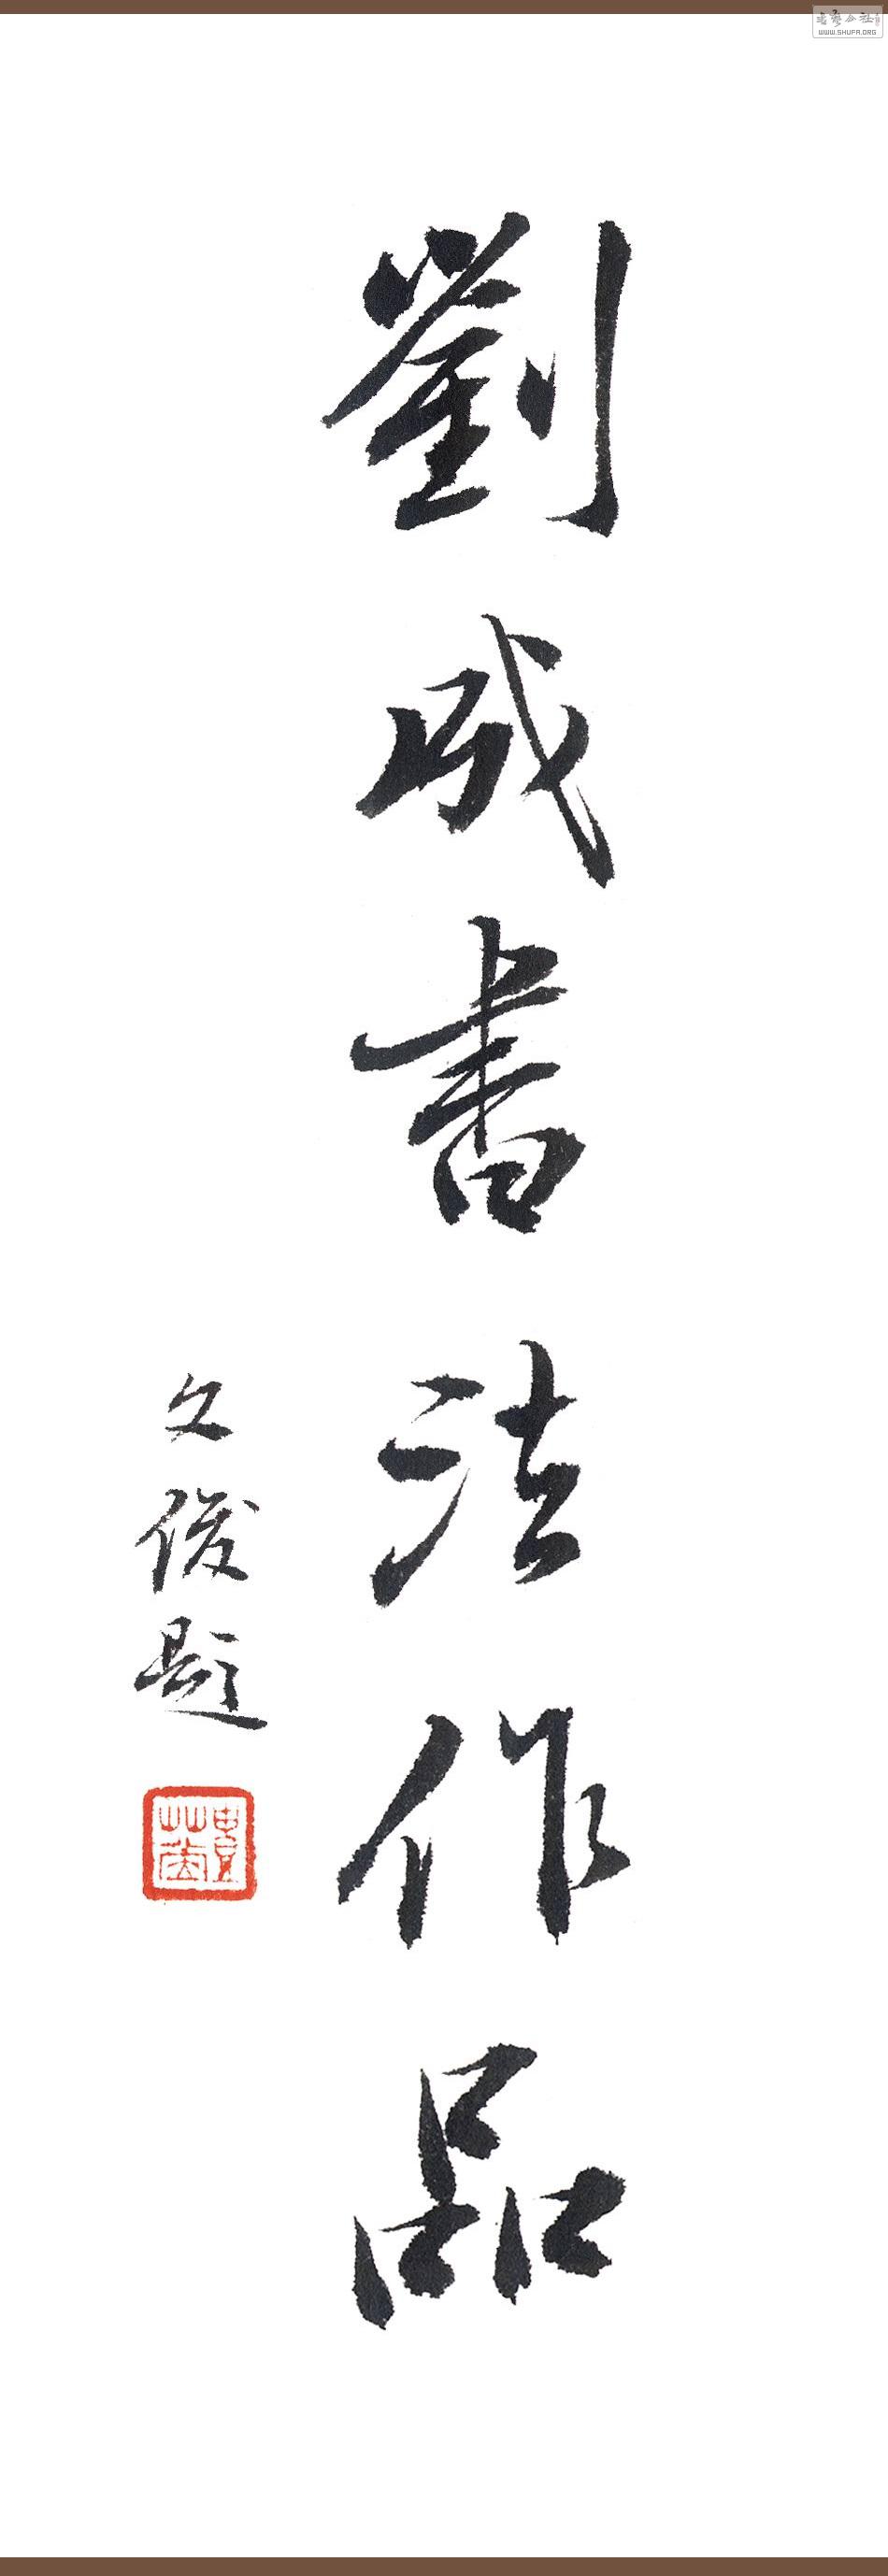 劉成書法作品
文俊題
WWW.SHUFA.ORG